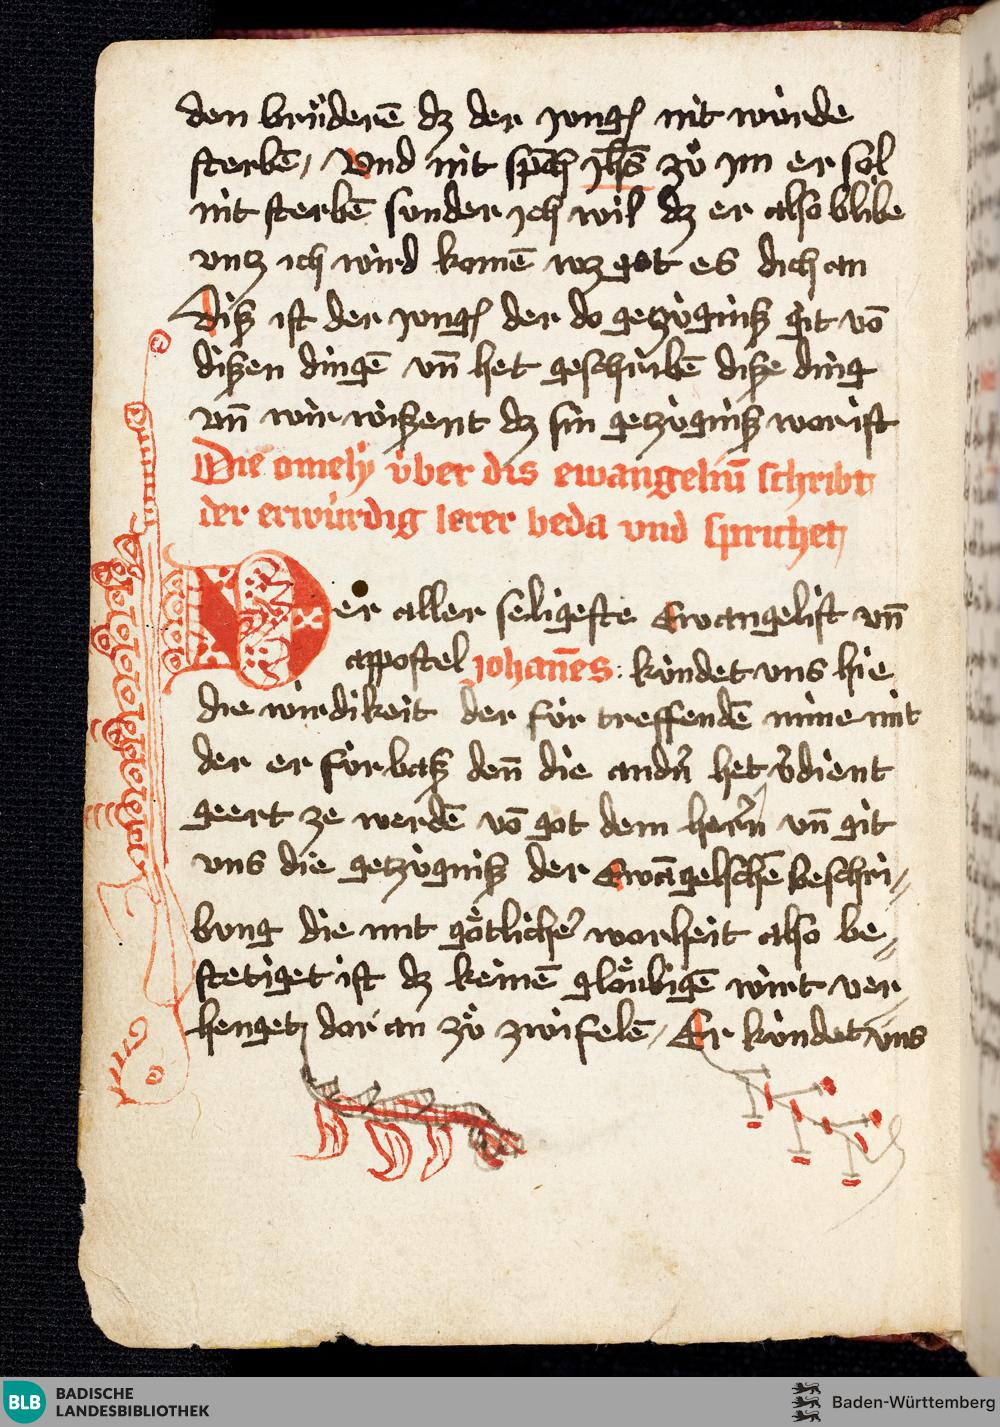 den brůderē dz der jungʒ nit wúrde
sterbē / Vnd nit sp̄ch jh̄s zů im er sol
nit sterbē sunder ich wil dz er also blibe
vntz ich wird komē wz got es dich an
Disz ist der jungʒ der do getzúgnisz git vō
diszen dingē vn̄ het geschribē disze ding
vn̄ wir wiszent dz sin getzúgnisz wor ist
Die omely v́ber dis ewangeliū schribt
der erwúrdig lerer beda vnd sprichet
Der aller seligeste Ewangelist vn̄
appostel johan̄es : kúndet vns hie
die wirdikeit der fúr treffendē mine mit
der er fúrbasz den̄ die andn̄ het v̓dient
geert ze werdē vō got dem herrn̄ vn̄ git
vns die getzúgnisz der Ewāgelschē beschri//
bung die mit gȯ̈tliche᷑ worheit also be//
stetiget ist dz keinē glȯ̈ubigē wirt ver
henget dar an zů zwifelē / Er kúndet vns
BLB
BADISCHE
LANDESBIBLIOTHEK
Baden-Württemberg